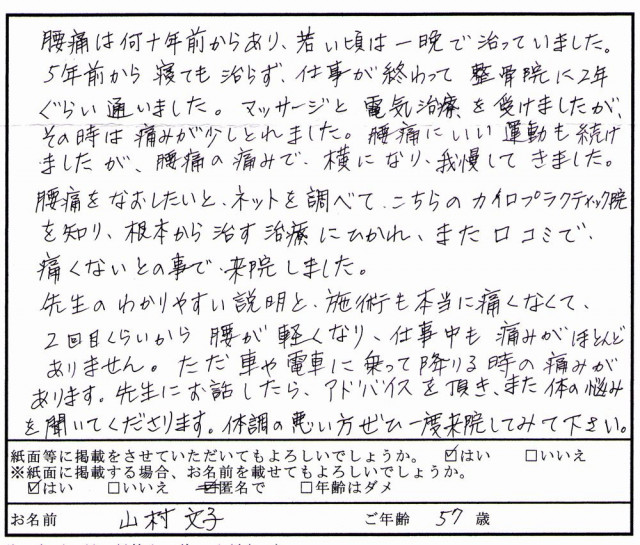 腰痛は何十年前からあり、若い頃は一晩で治っていました。
5年前から寝ても治らず、仕事が終わって整骨院に2年
ぐらい通いました。マッサージと電気治療を受けましたが、
その時は痛みが少しとれました。腰痛にいい運動も続け
ましたが、腰痛の痛みで、横になり、我慢してきました。
腰痛をなおしたいと、ネットを調べて、こちらのカイロプラクティック院
を知り、根本から治す治療にひかれ、また口コミで、
痛くないとの事で、来院しました。
先生のわかりやすい説明と、施術も本当に痛くなくて、
2回目くらいから腰が軽くなり、仕事中も痛みがほとんど
ありません。ただ車や電車に乗って降りる時の痛みが
あります。先生にお話したら、アドバイスを頂き、また体の悩み
を聞いてくださります。体調の悪い方ぜひ一度来院してみて下さい。
紙面等に掲載をさせていただいてもよろしいでしょうか。 ☑はい □いいえ
※紙面に掲載する場合、お名前を載せてもよろしいでしょうか。
☑はい □いいえ ☑匿名で □年齢はダメ
お名前 山村 文子 ご年齢 57 歳